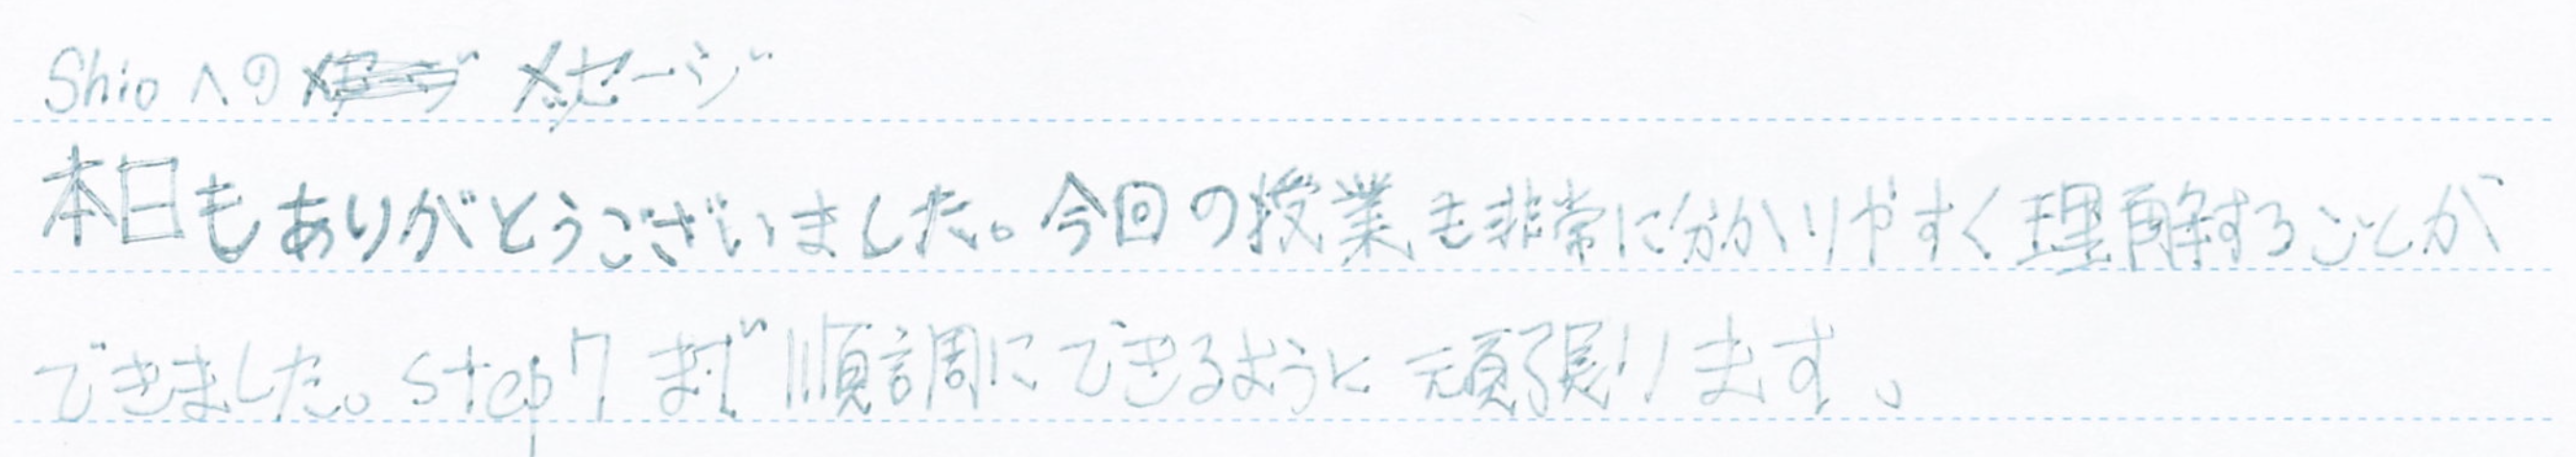 Shioへの メッセージ
本日もありがとうございました。今回の授業も非常に分かりやすく理解することが
できました。step7まで順調にできるように頑張ります。